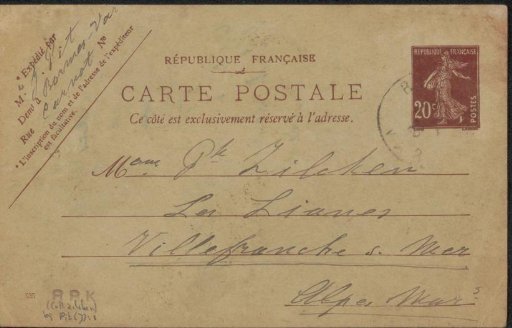 Expédié par
M
Demt à Bormes-Var
Rue Carnot No
L'inscription du nom et de l'adresse de l'expéditeur
est facultative.
RÉPUBLIQUE FRANÇAISE
CARTE POSTALE
Ce côté est exclusivement réservé à l'adresse.
RÉPUBLIQUE FRANÇAISE
20c
POSTES
Mme Ph Zilcken
Les Lianes
Villefranche s. Mer
Alpes Mars
R.P.K